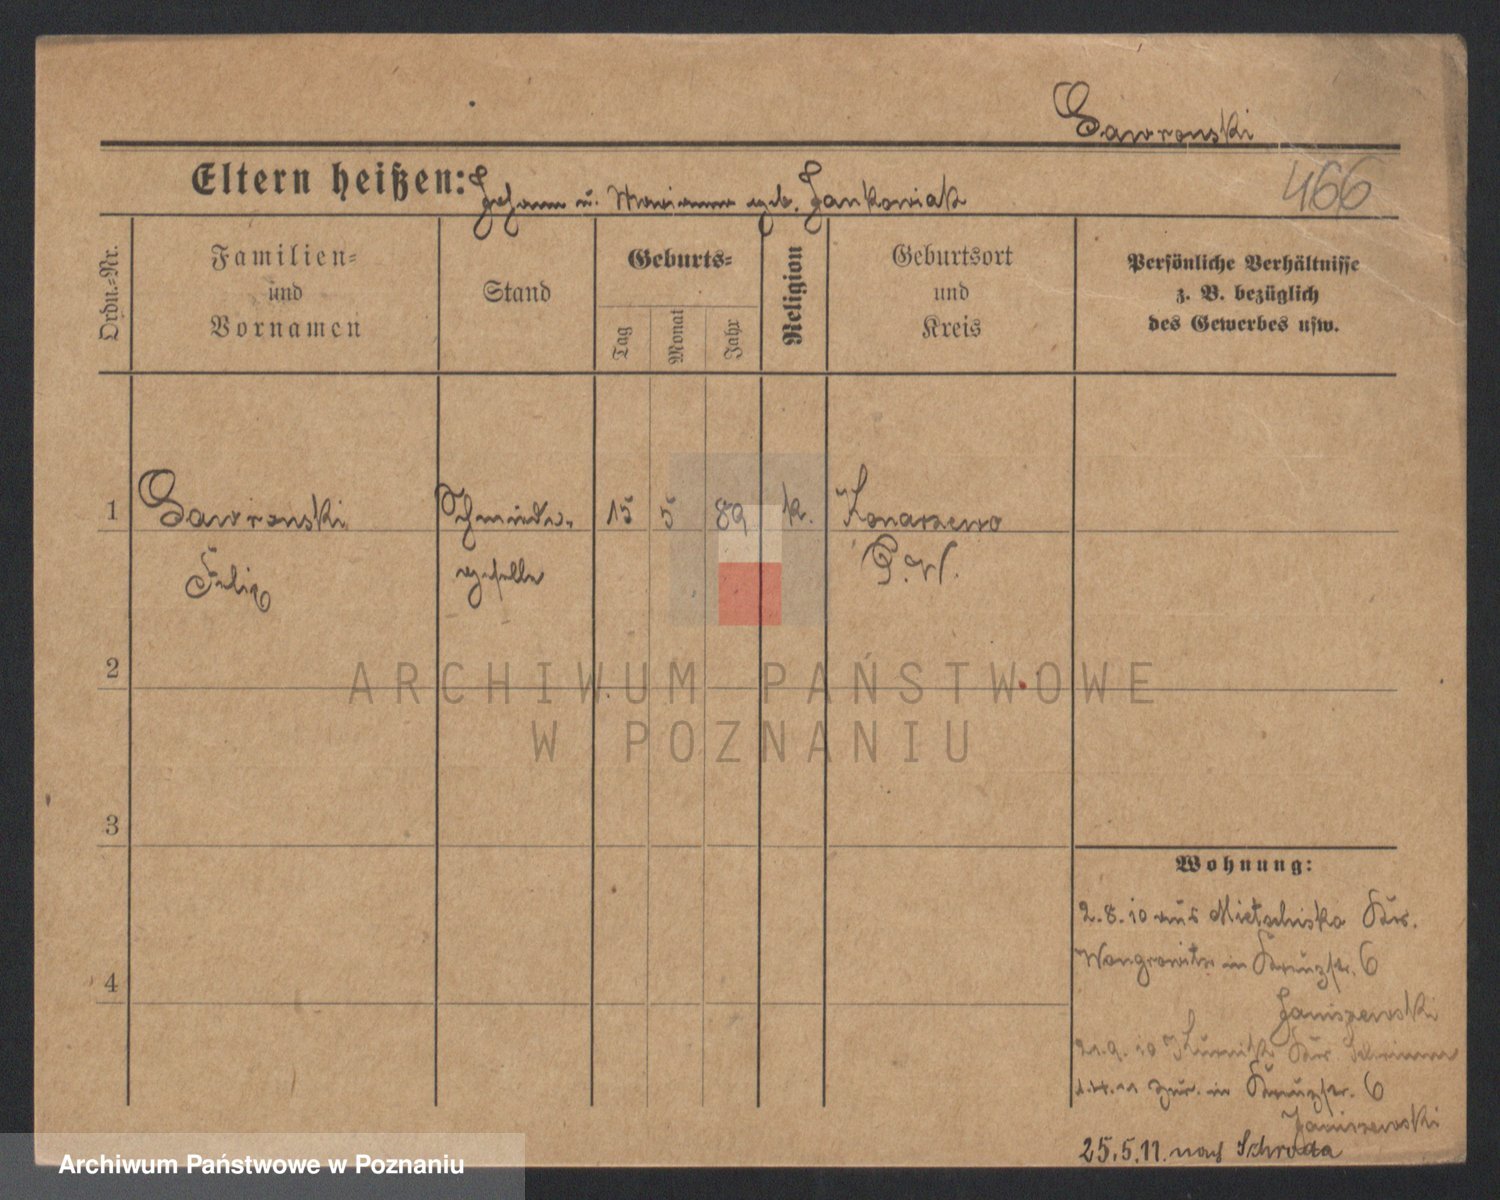 Gawronski
466
Eltern heißen: Johann u. Marianna geb. Jankowiak
Ordn.-Nr.
Familien-
und
Vornamen
Stand
Geburts-
Tag
Monat
Jahr
Religion
Geburtsort
und
Kreis
Persönliche Verhältnisse
z. B. bezüglich
des Gewerbes usw.
1
Gawronski
Felix
Schmiede-
geselle
15
5
89
k.
Konarzewo
P.W.
2
3
4
Wohnung:
2.8.10 aus Mietschisko Krs.
Wongrowitz in Kreuzstr. 6
Janiszewski
21.9.10 Kurnik Krs. Schrimm
zur. in Kreuzstr. 6
Janiszewski
25.5.11. nach Schroda
ARCHIWUM PAŃSTWOWE
W POZNANIU
Archiwum Państwowe w Poznaniu